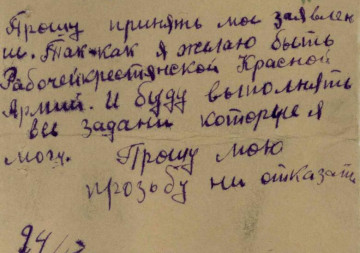 Прошу принять мое заявлен
и. Так как я желаю быть
Рабочейкрестянской Красной
Армий. И буду выполнять
все задани которые я
могу. Прошу мою
прозьбу ни отказать
24/